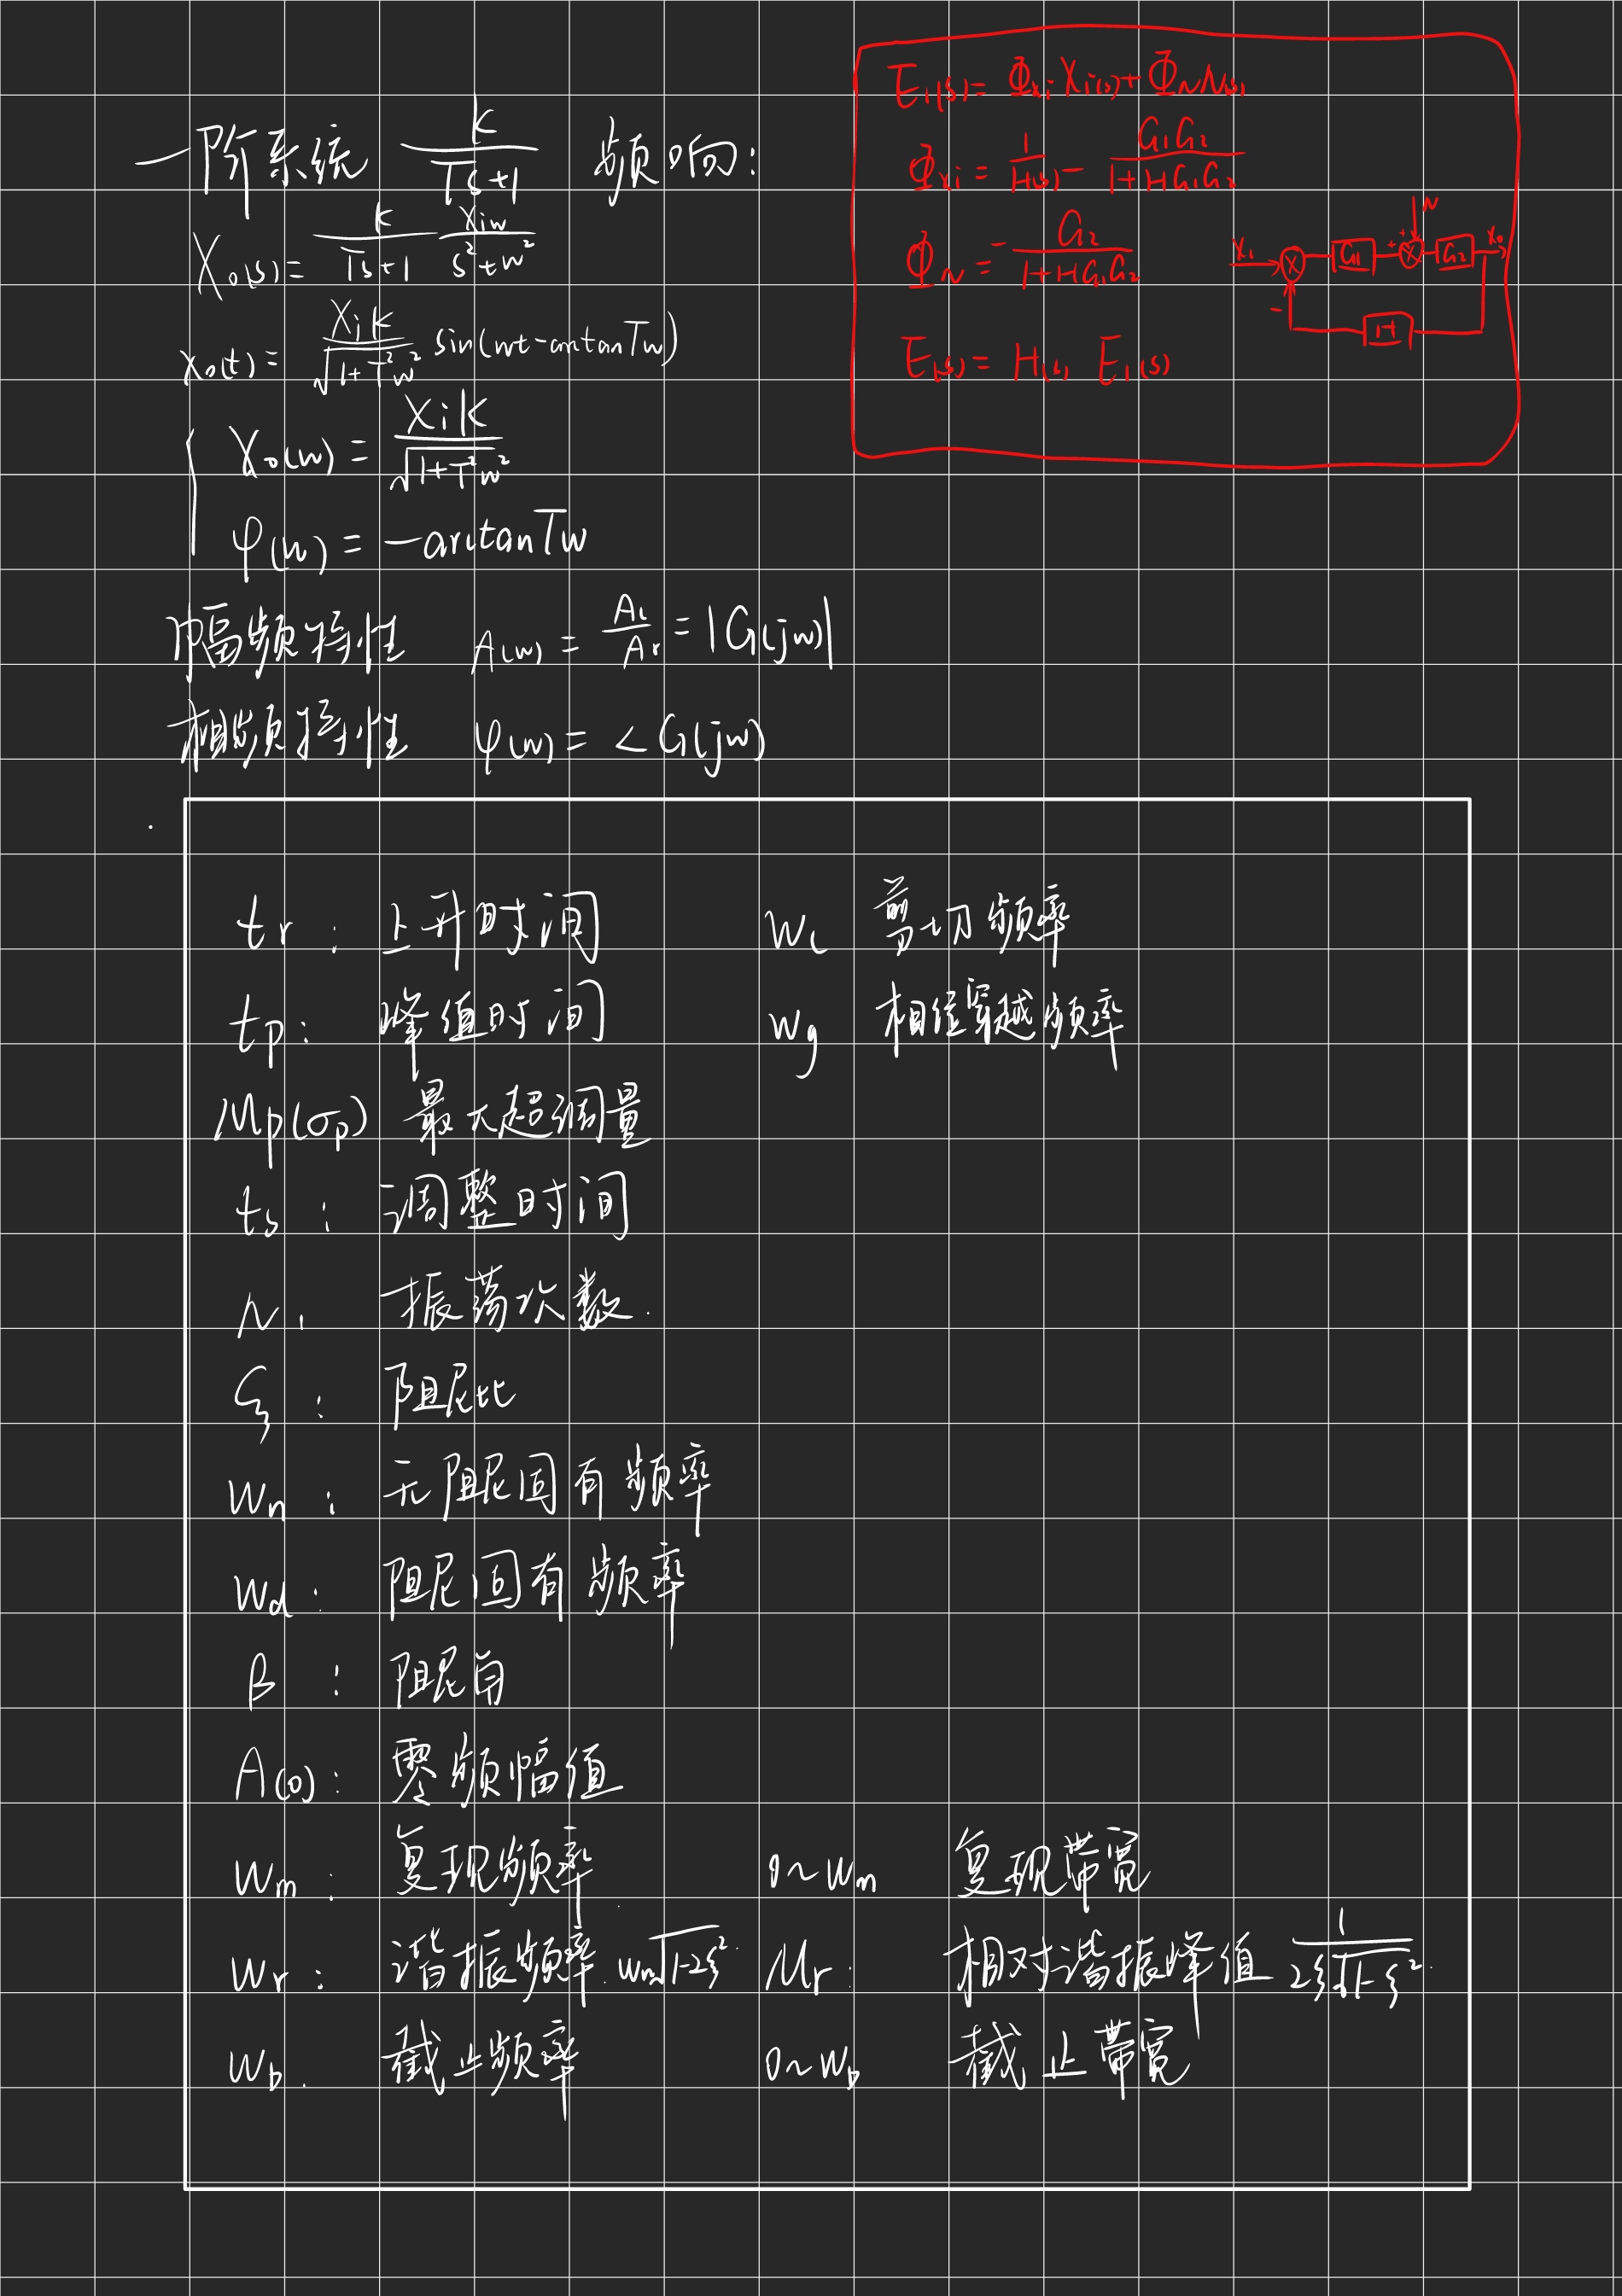 一阶系统 K/(Ts+1) 频响:
Xo(s) = K/(Ts+1) Xiw/(s²+w²)
xo(t) = XiK/√(1+T²w²) sin(wt-arctanTw)
Xo(w) = XiK/√(1+T²w²)
φ(w) = -arctanTw
幅频特性 A(w) = = |G(jw)|
相频特性 φ(w) = ∠G(jw)
E₁(s) = Φxi Xi(s) + ΦN N(s)
Φxi = 1/H(s) - G₁G₂/(1+HG₁G₂)
ΦN = G₂/(1+HG₁G₂)
E(s) = H(s) E₁(s)
N
Xi G₁ + + G₂ Xo
- H
tr: 上升时间 wc 剪切频率
tp: 峰值时间 wg 相位穿越频率
Mp(σp) 最大超调量
ts: 调整时间
N: 振荡次数.
ξ: 阻尼比
wn: 无阻尼固有频率
wd: 阻尼固有频率
β: 阻尼角
A(0): 零频幅值
wm: 复现频率 0~wm 复现带宽
wr: 谐振频率. wn√(1-2ξ²) Mr: 相对谐振峰值 1/(2ξ√(1-ξ²))
wb. 截止频率 0~wb 截止带宽